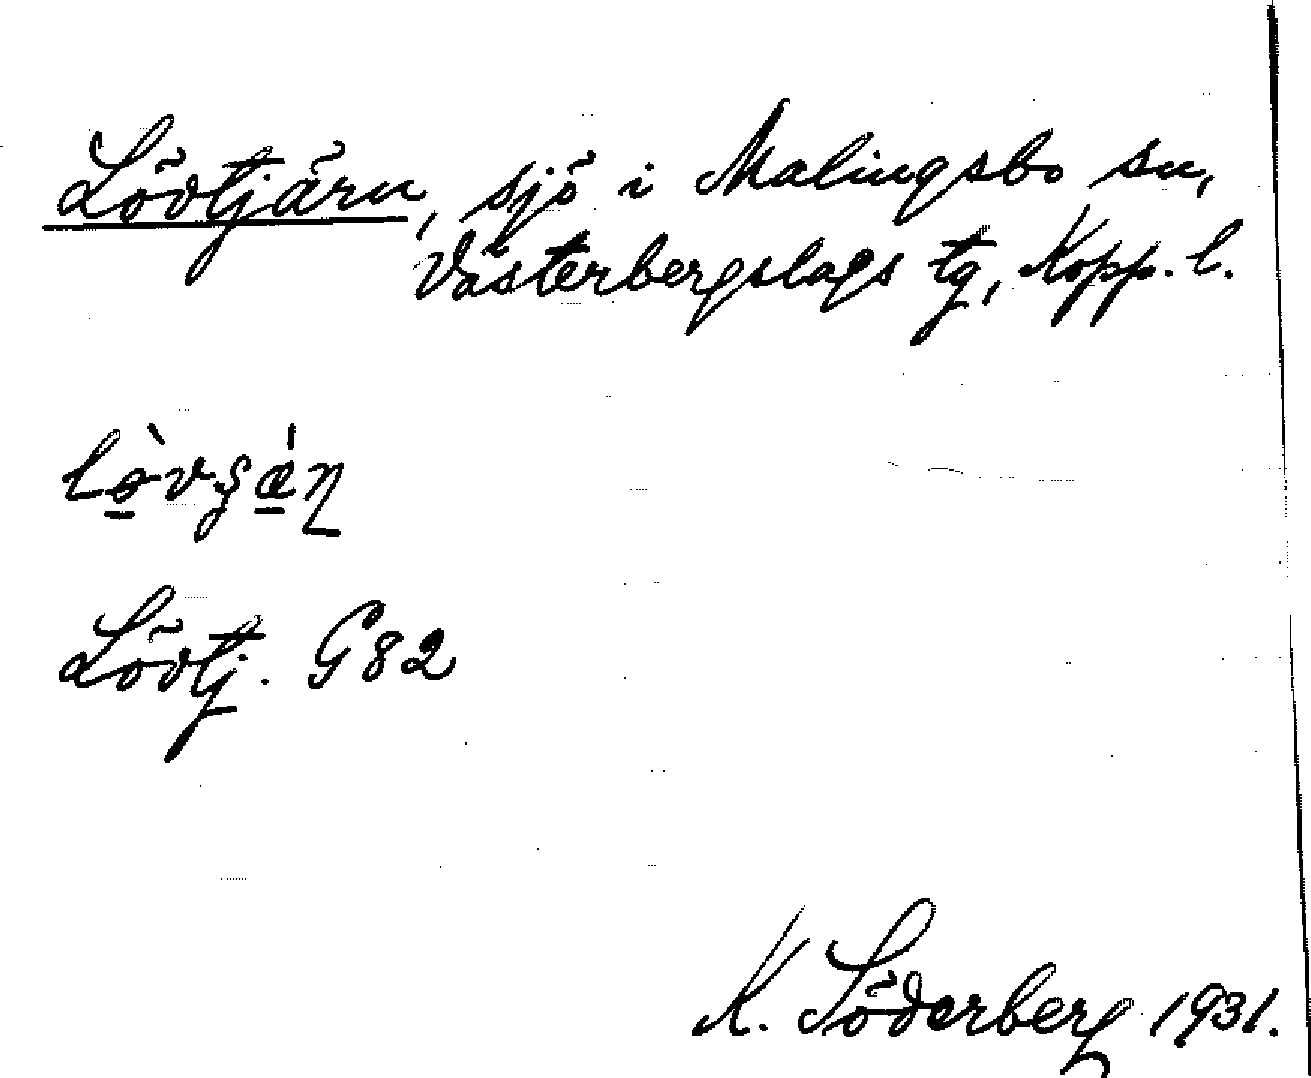 Lövtjärn, sjö i Malingsbo sn,
Västerbergslags tg, Kopp. l.
Lövtj. G82
K. Söderberg 1931.